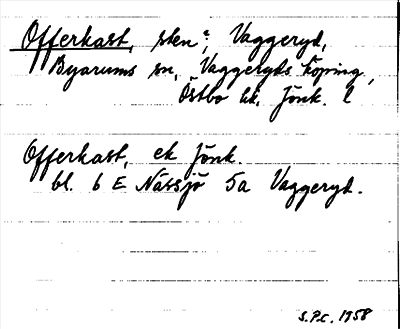 Offerkast, sten?, Vaggeryd,
Byarums sn, Vaggeryds köping,
Östbo hd, Jönk. l
Offerkast, ek Jönk.
bl. 6 E Nässjö 5a Vaggeryd.
S.P.c. 1958